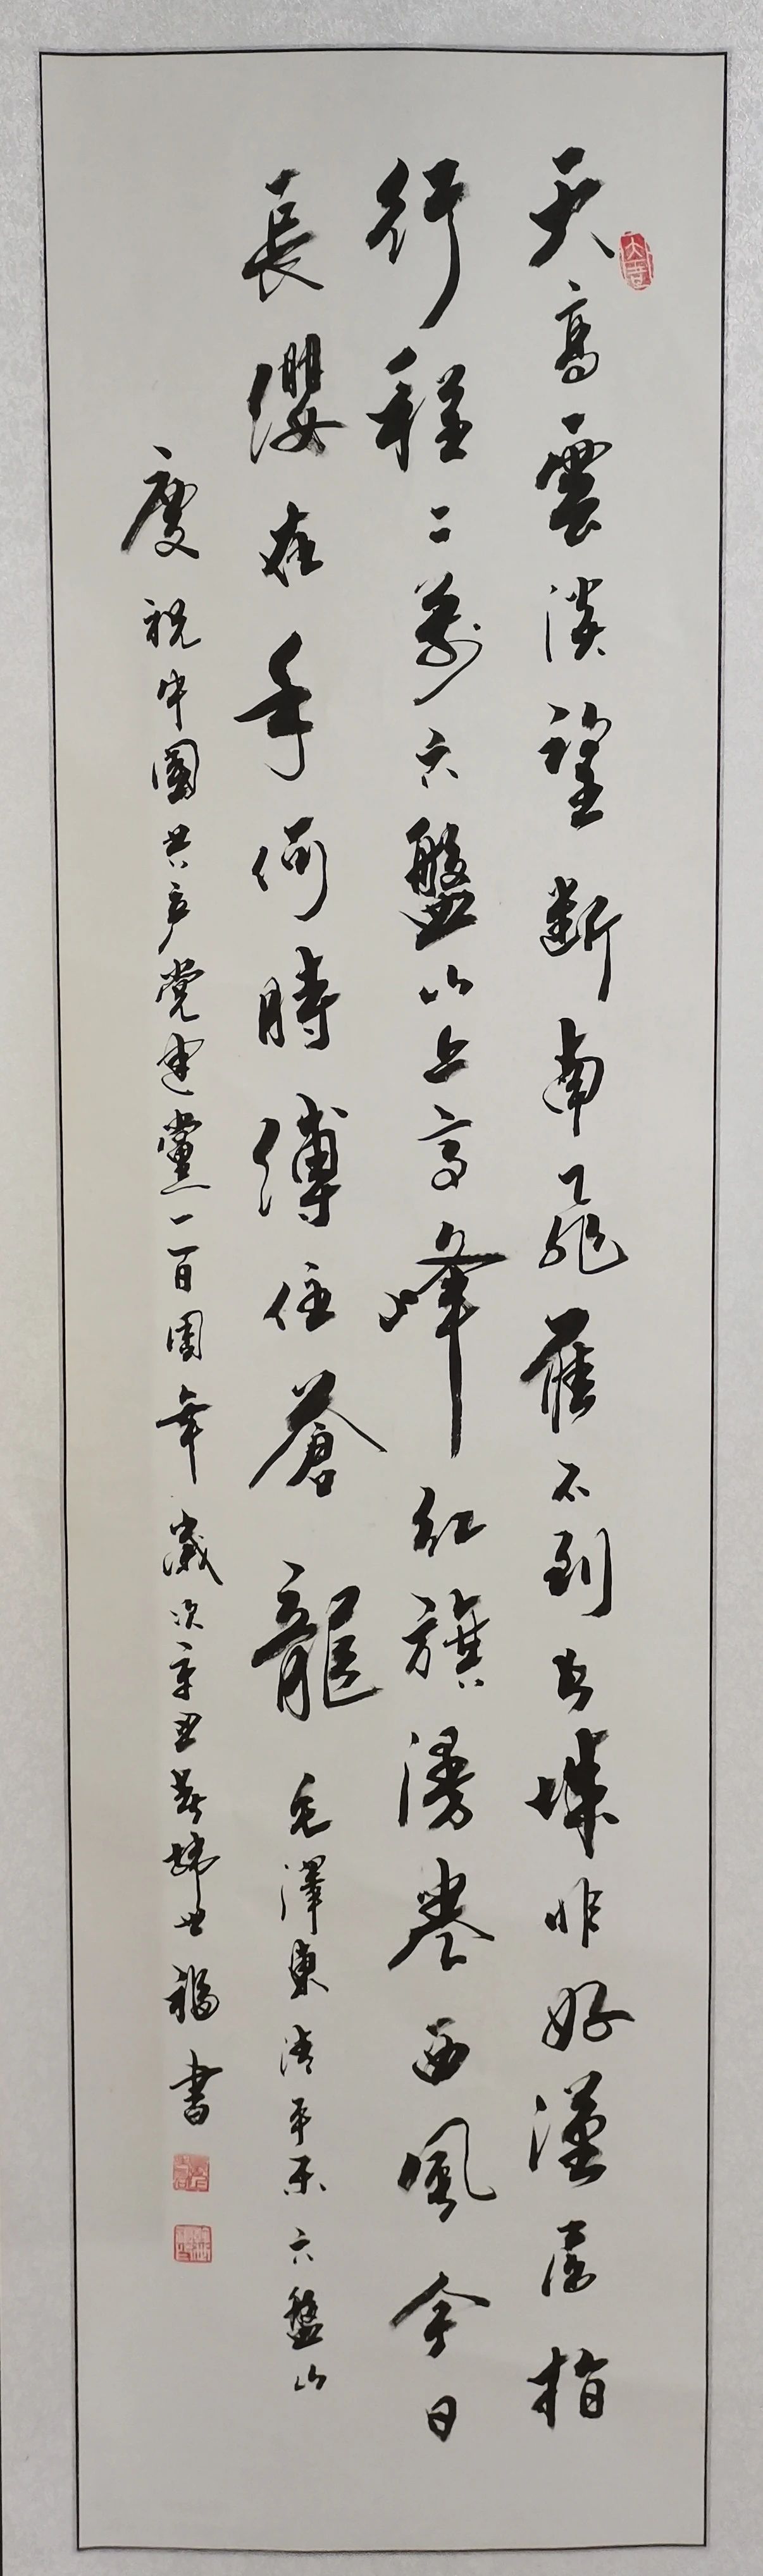 天高雲淡望斷南飛雁不到长城非好漢屈指
行程二萬六盤山上高峰紅旗漫卷西風今日
長纓在手何時縛住蒼龍 毛澤東清平乐六盤山
慶祝中國共产党建黨一百周年歲次辛丑春世福書